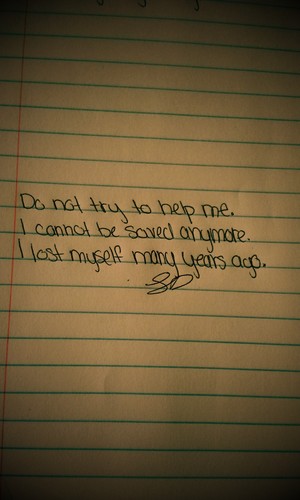 Do not try to help me.
I cannot be saved anymore.
I lost myself many years ago.
SD